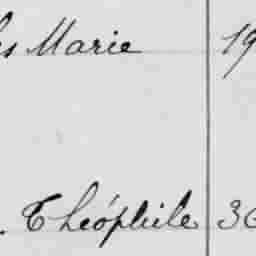 Marie 19
Théophile 30